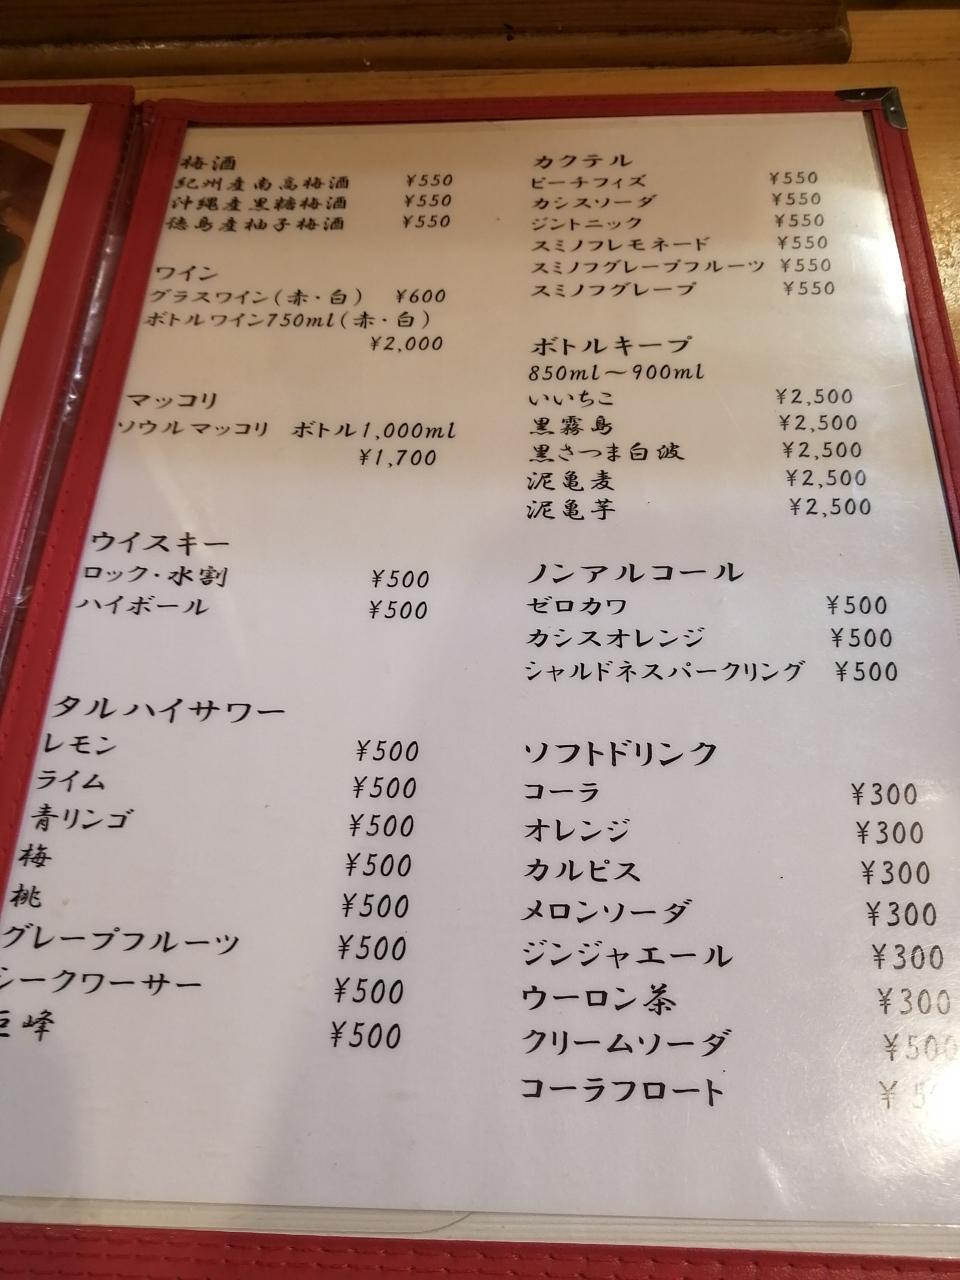 梅酒
紀州産南高梅酒 ¥550
沖縄産黒糖梅酒 ¥550
徳島産柚子梅酒 ¥550
ワイン
グラスワイン(赤・白) ¥600
ボトルワイン750ml(赤・白)
¥2,000
マッコリ
ソウルマッコリ ボトル1,000ml
¥1,700
ウイスキー
ロック・水割 ¥500
ハイボール ¥500
タルハイサワー
レモン ¥500
ライム ¥500
青リンゴ ¥500
梅 ¥500
桃 ¥500
グレープフルーツ ¥500
シークワーサー ¥500
巨峰 ¥500
カクテル
ピーチフィズ ¥550
カシスソーダ ¥550
ジントニック ¥550
スミノフレモネード ¥550
スミノフグレープフルーツ ¥550
スミノフグレープ ¥550
ボトルキープ
850ml～900ml
いいちこ ¥2,500
黒霧島 ¥2,500
黒さつま白波 ¥2,500
泥亀麦 ¥2,500
泥亀芋 ¥2,500
ノンアルコール
ゼロカワ ¥500
カシスオレンジ ¥500
シャルドネスパークリング ¥500
ソフトドリンク
コーラ ¥300
オレンジ ¥300
カルピス ¥300
メロンソーダ ¥300
ジンジャエール ¥300
ウーロン茶 ¥300
クリームソーダ ¥500
コーラフロート